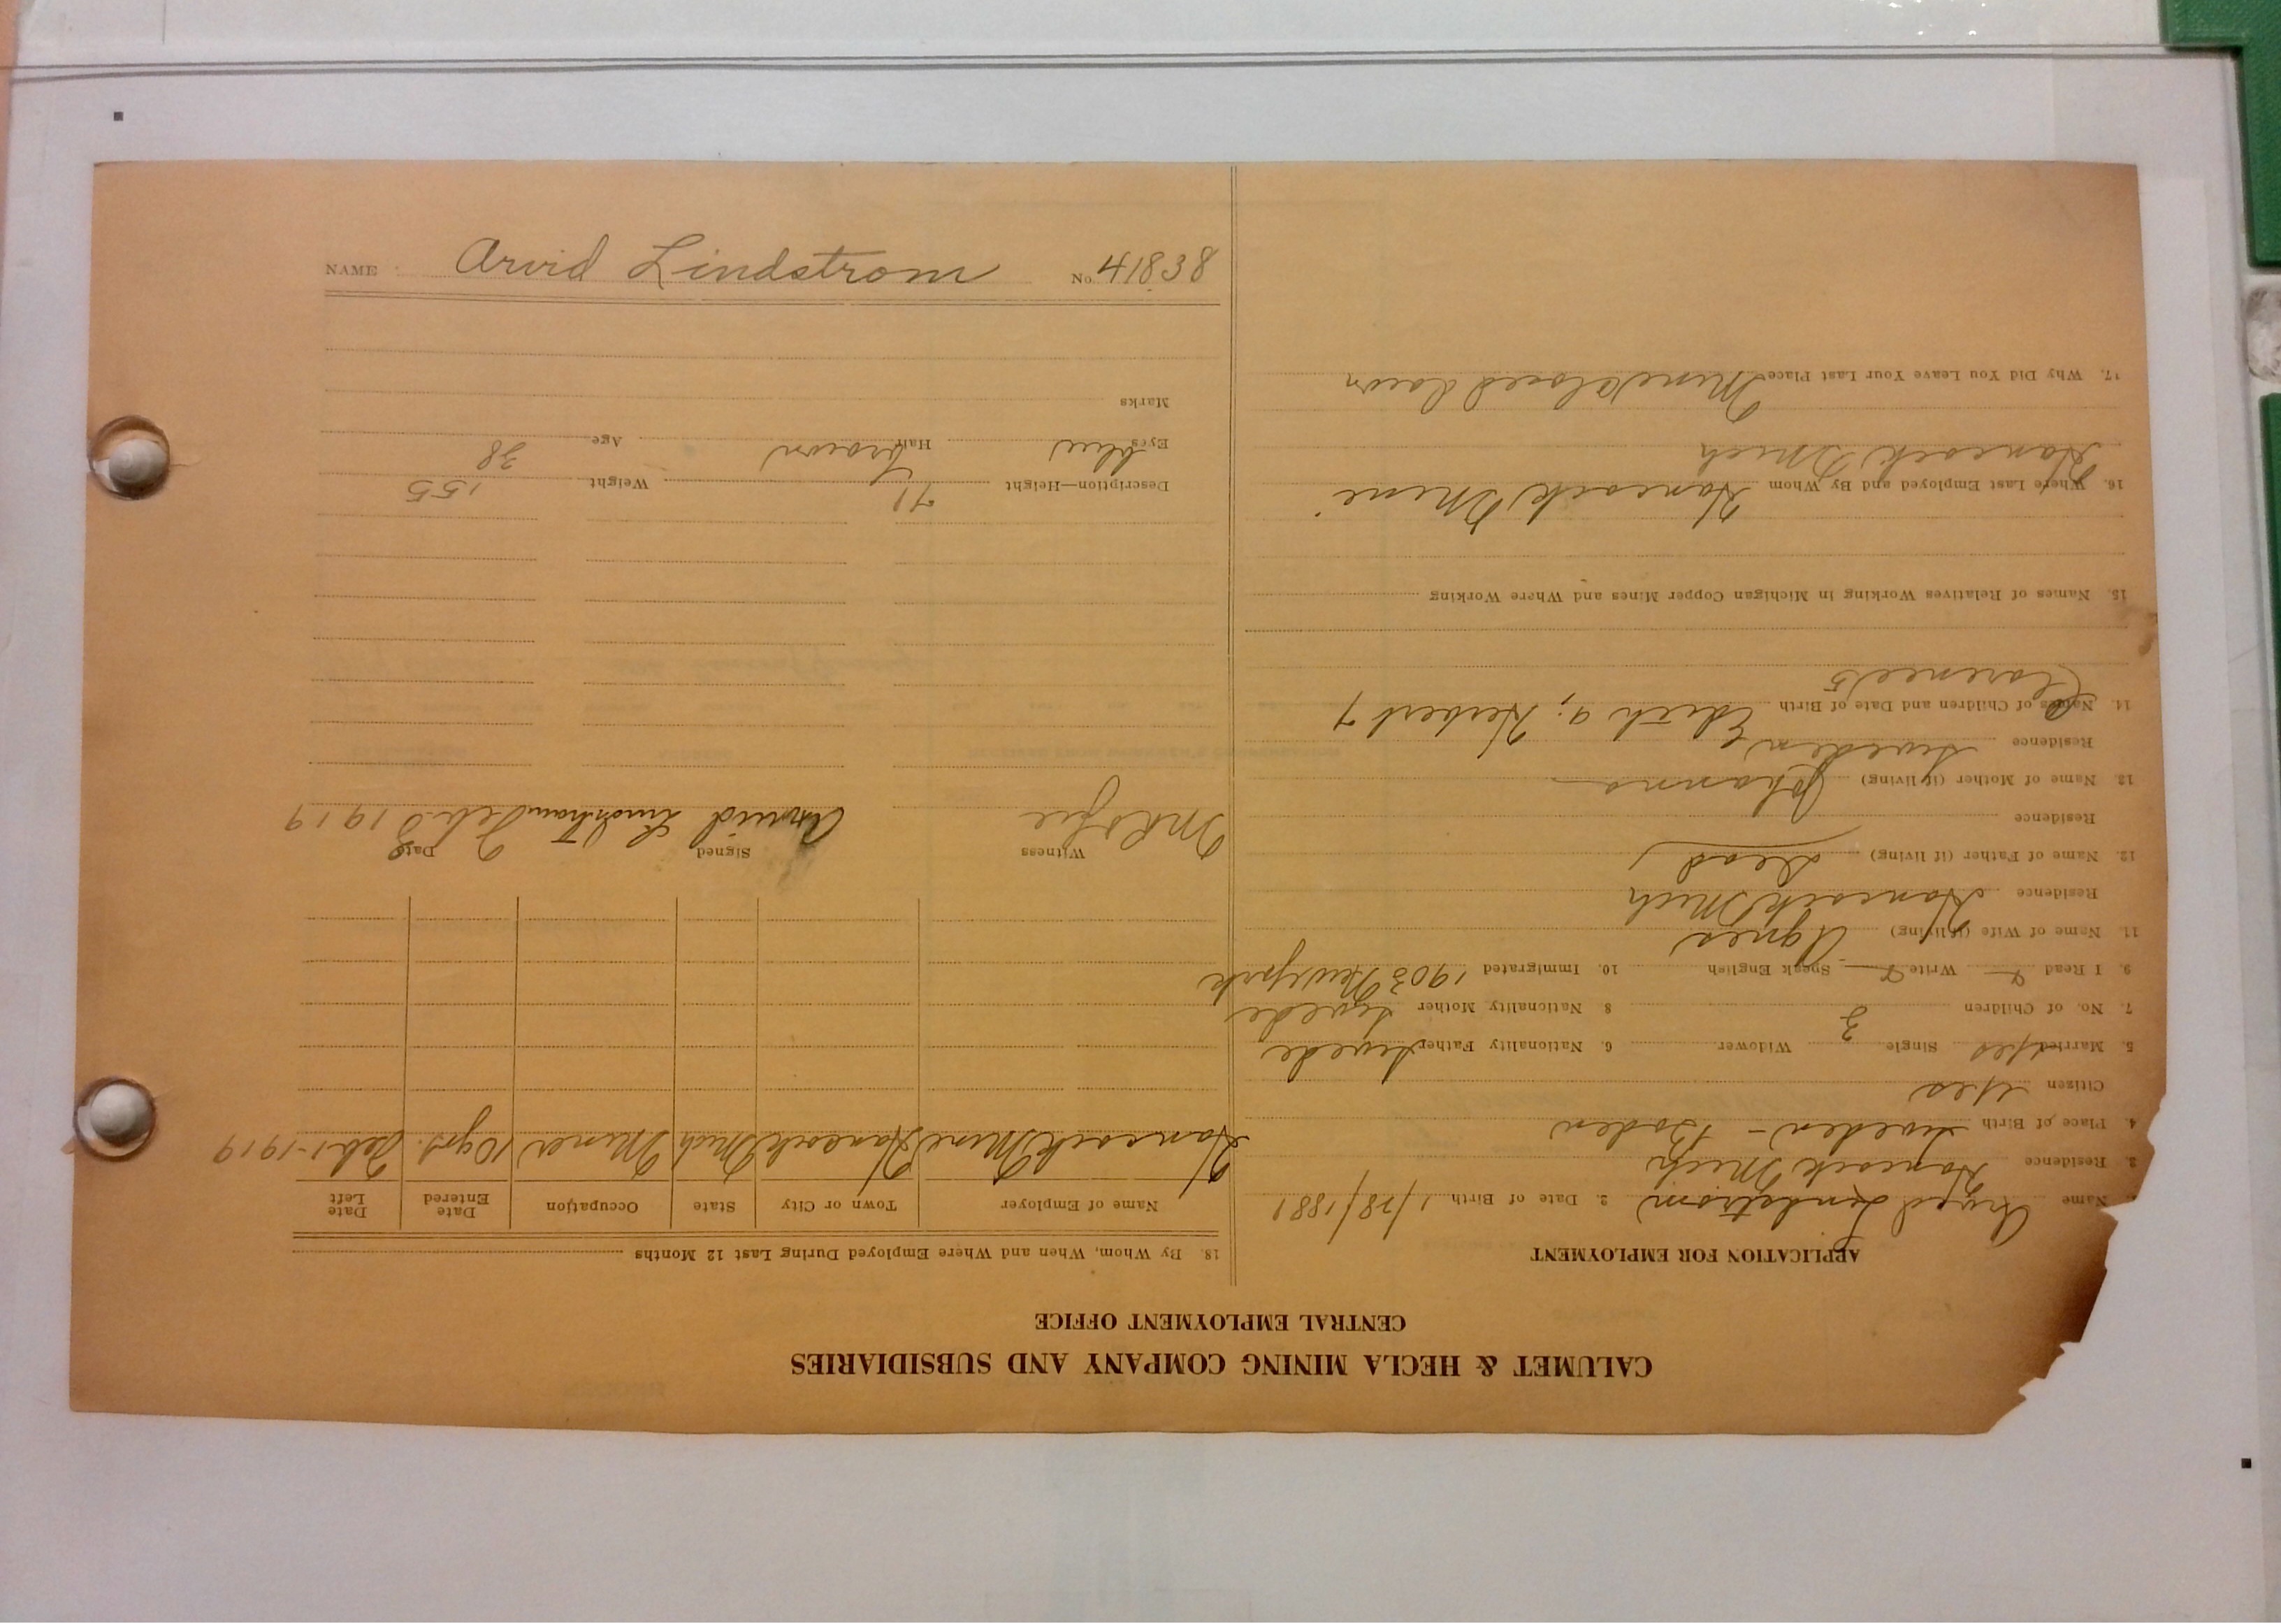 CALUMET & HECLA MINING COMPANY AND SUBSIDIARIES
CENTRAL EMPLOYMENT OFFICE
APPLICATION FOR EMPLOYMENT
Name Arvid Lindstrom 2. Date of Birth 1/28/1881
3. Residence Hancock Mich
4. Place of Birth Sweden - Boden
Citizen Yes
5. Married Yes Single Widower 6. Nationality Father Swede
7. No. of Children 3 8 Nationality Mother Swede
9. I Read Write Speak English 10. Immigrated 1903 New York
11. Name of Wife (if living) Agnes
Residence Hancock Mich
12. Name of Father (if living) Dead
Residence
13. Name of Mother (if living) Johanna
Residence Sweden
14. Names of Children and Date of Birth Edith 9; Herbert 7
Clarence 5
15. Names of Relatives Working in Michigan Copper Mines and Where Working
16. Where Last Employed and By Whom Hancock Mine
Hancock Mich
17. Why Did You Leave Your Last Place Mine closed down
18. By Whom, When and Where Employed During Last 12 Months
Name of Employer Town or City State Occupation Date Entered Date Left
Hancock Mine Hancock Mich Miner 10 yrs. Feb 1-1919
Witness Signed Date
Arvid Lindstrom Feb 8 1919
Description—Height 71 Weight 155
Eyes blue Hair brown Age 38
Marks
NAME Arvid Lindstrom No. 41838